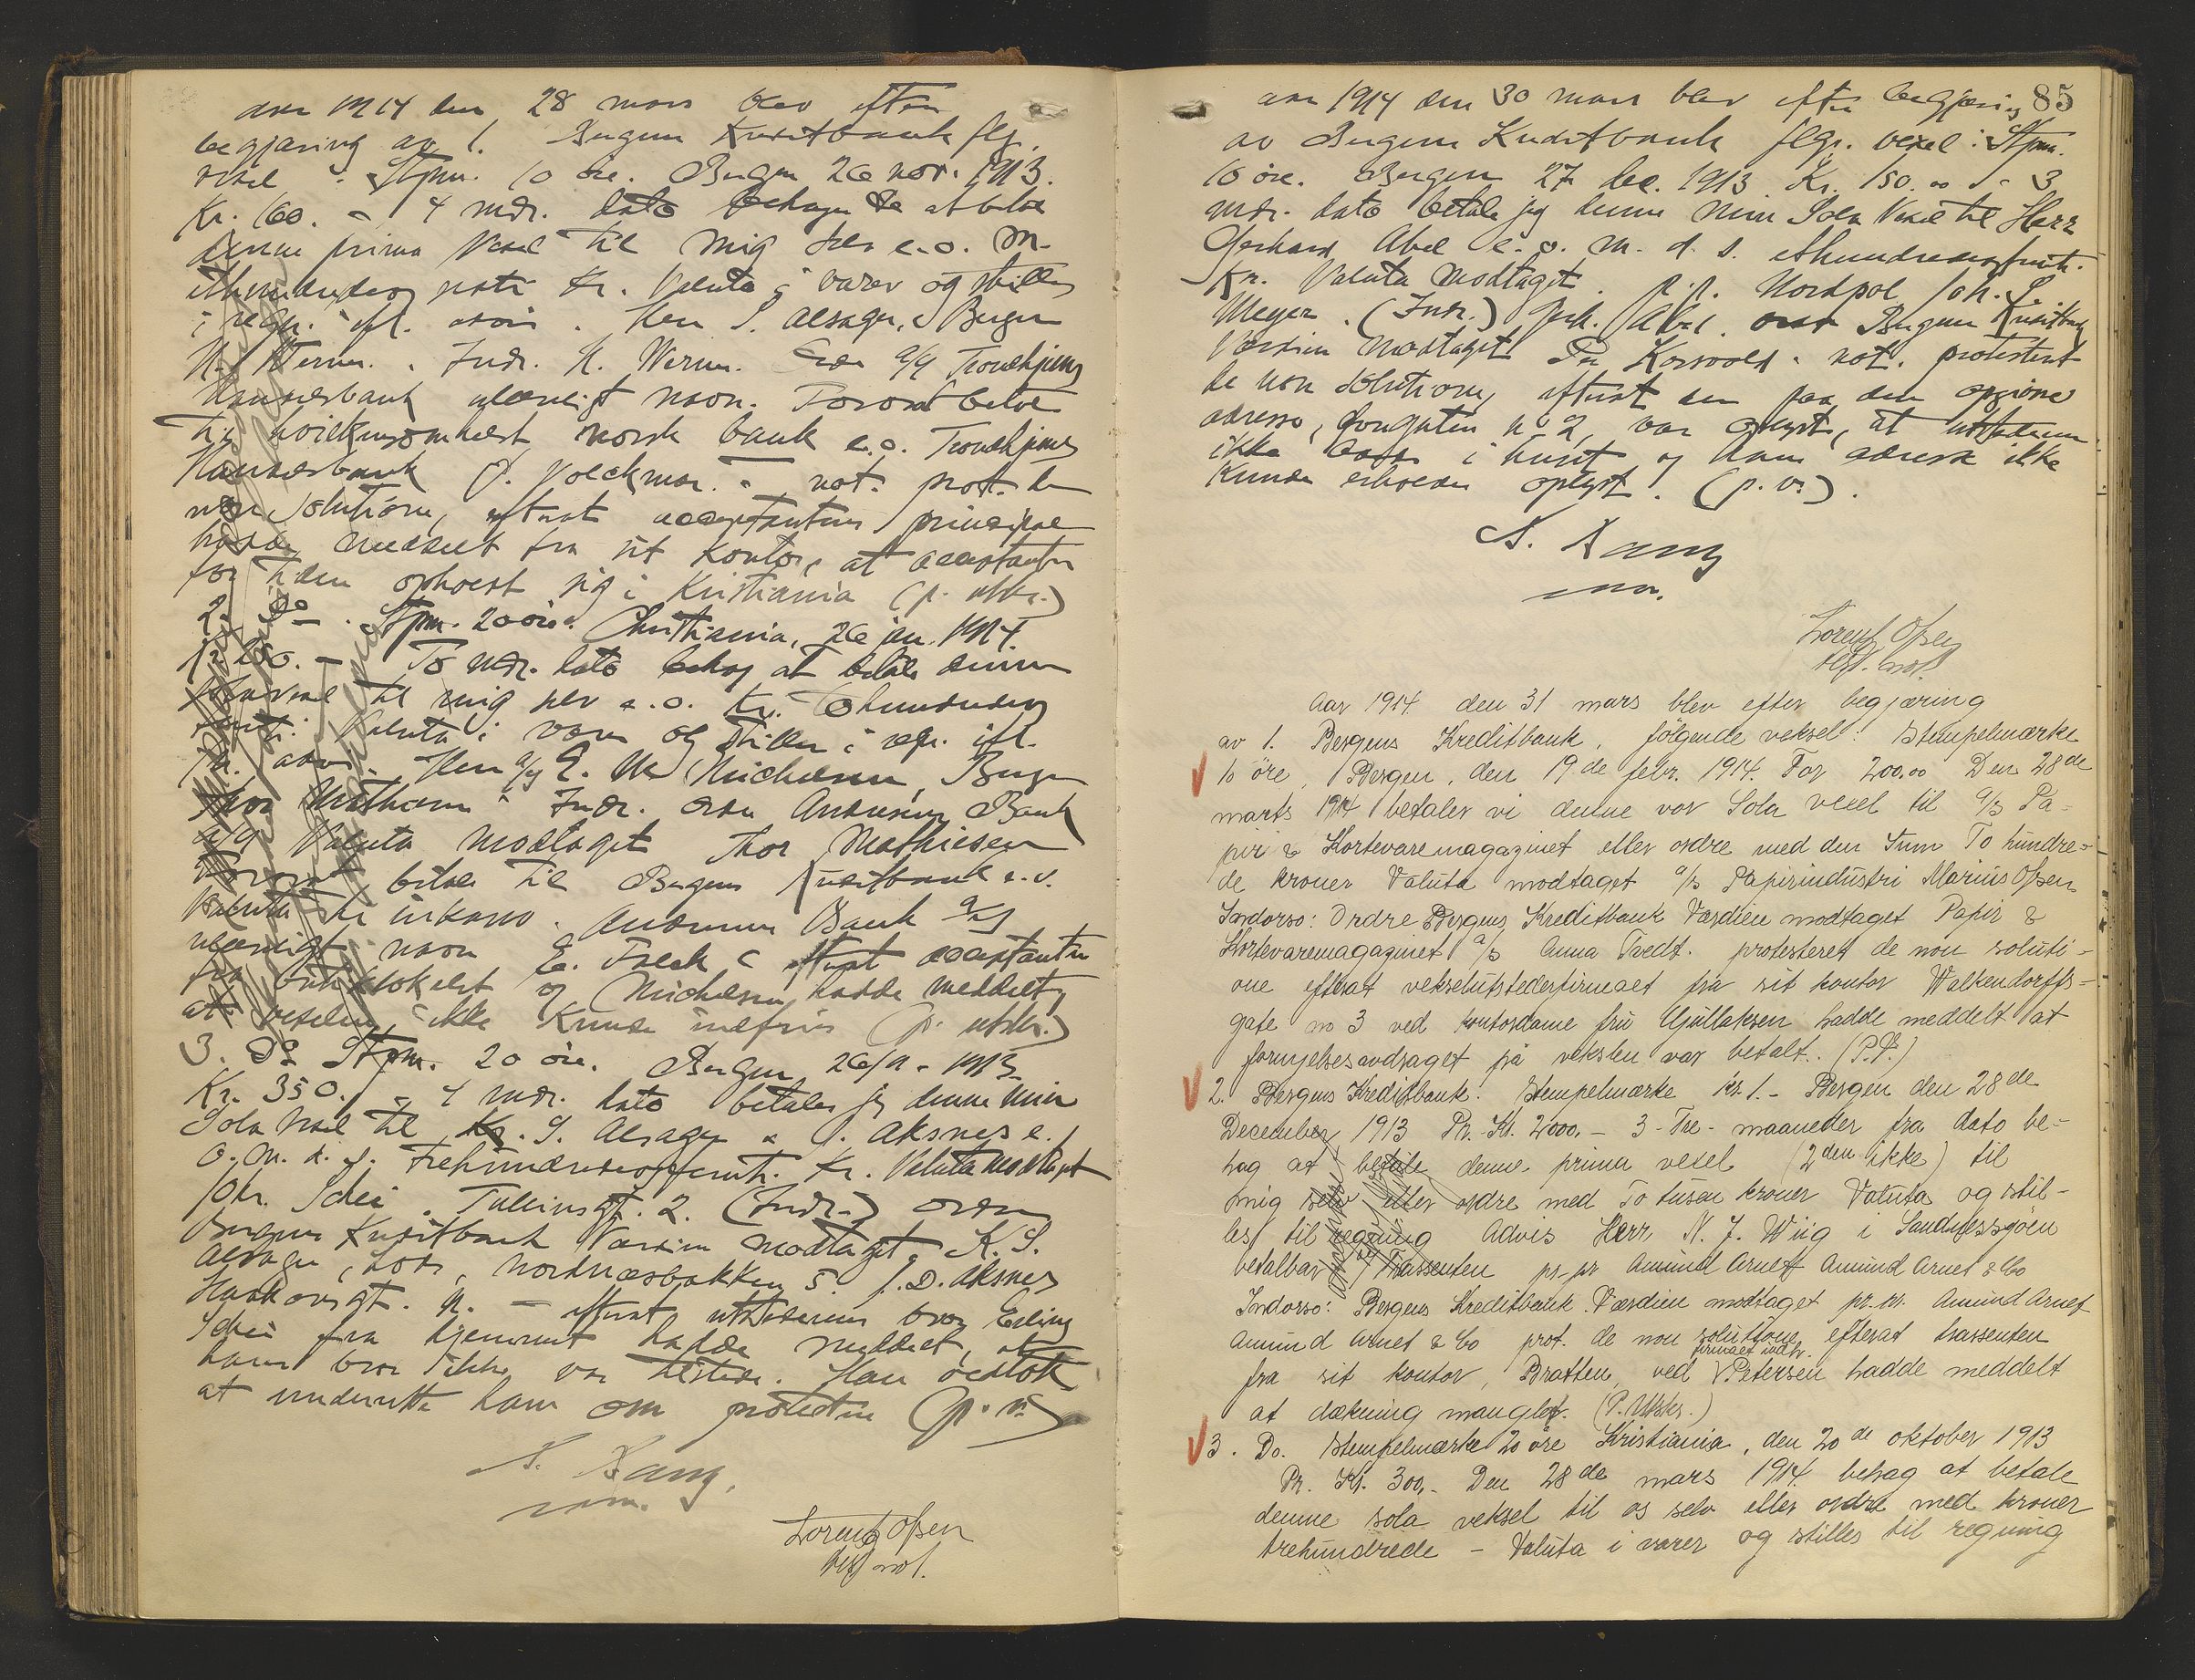 aar 1914 den 28 mars blev efter
begjæring av 1. Bergens Kreditbank flg.
vexel : Stpm. 10 øre. Bergen 26 nov. 1913.
Kr. 160. - 4 mdr. dato behager De at betale
denne prima Vexel til mig selv e.o. m.
Valuta i varer og stilles
i regn. ifl. advis. Herr S. Alsager, Bergen
N. Werner. Indr. N. Werner. Ordre a/s Trondhjems
Handelsbank ulæseligt navn. Foranst. betal
til hvilkensomhelst norsk bank e.o. Trondhjems
Handelsbank J. Volckmar. - not. prot. de
non solutione, efterat acceptantens principal
havde meddelt fra sit kontor, at acceptanten
for tiden opholdt sig i Kristiania (p. utskr.)
2. Do. Stpm. 20 øre. Christiania, 26 jan. 1914.
Kr. 250. - To mdr. dato behag at betale denne
til mig selv e.o. Kr. Tohundredeog
femti. Valuta i varer og stilles i regn. ifl.
advis. Herr E. Michelsen, Bergen
Thor Mathiesen. Indr. ordre Andresens Bank
a/s Valuta modtaget Thor Mathiesen
Foranst. betal til Bergens Kreditbank e.o.
Valuta til inkasso. Andresens Bank a/s
ulæseligt navn E. Falck efterat acceptanten
fra butiklokalet og Michelsen havde meddelt,
at vexelen ikke kunde indfries (p. utskr.)
3. Do Stpm. 20 øre. Bergen 26/11 - 1913
Kr. 350. - 4 mdr. dato betaler jeg denne min
Sola Vexel til K. S. Alsager & J. Aksnes e.
o. m. d. s. Trehundredeogfemti. Kr. Valuta modtaget
Joh. Schei. Tullinsgt. 2. (Indr.) ordre
Bergens Kreditbank Værdien modtaget. K. S.
Alsager, Lods, Nordnæsbakken 5. J. D. Aksnes
Haakonsgt. 11. - efterat utstederens bror Erling
Schei fra hjemmet hadde meddelt, at
hans bror ikke var tilstede. Han vedtok
at underrette ham om protesten (p. v.)
N. Bang.
nom.
Lorentz Olsen
not.
85
aar 1914 den 30 mars blev efter begjæring
av Bergens Kreditbank flgr. vexel : Stpm.
10 øre. Bergen 27 dec. 1913 Kr. 150.00 - 3
mdr. dato betaler jeg denne min Sola Vexel til Herr
Gerhard Abel e. o. m. d. s. ethundredeogfemti.
Kr. Valuta modtaget. p.p. Nordpol Joh. L.
Meyer. (Indr.) Gerh. Abel. ordre Bergens Kreditbank
Værdien modtaget Per Korsvold - not. protestert
de non solutione, efterat der paa den opgivne
adresse, Kongegaten no 2, var oplyst, at utstederen
ikke bodde i huset og hans adresse ikke
kunde erholdes oplyst. (p. v.).
N. Bang
nom.
Lorentz Olsen
not.
Aar 1914 den 31 mars blev efter begjæring
av 1. Bergens Kreditbank, følgende veksel: Stempelmærke
10 øre, Bergen, den 19de febr. 1914. For 200.00 Den 28de
marts 1914 betaler vi denne vor Sola vexel til a/s Pa-
pir & Kortevaremagazinet eller ordre med den Sum To hundre-
de kroner Valuta modtaget a/s Papirindustri Marius Olsen
Indorso: Ordre Bergens Kreditbank Værdien modtaget Papir &
Kortevaremagazinet a/s Anna Tvedt. protesteret de non soluti-
one efterat vekselutstederfirmaet fra sit kontor Walkendorffs-
gate no 3 ved kontordame fru Gullaksen hadde meddelt at
fornyelsesavdraget på vekslen var betalt. (P.V.)
2. Bergens Kreditbank. Stempelmærke kr. 1.- Bergen den 28de
December 1913 Pr. Kr. 2000.- 3 - Tre - maaneder fra dato be-
hag at betale denne prima vexel (2den ikke) til
mig selv eller ordre med To tusen kroner Valuta og stil-
les til regning Advis Herr N. J. Wiig i Sandnessjöen
betalbar Trassenten pr. pr Amund Arnet Amund Arnet & Co
Indorso: Bergens Kreditbank. Værdien modtaget pr. pr. Amund Arnet
Amund Arnet & Co prot. de non solutione, efterat trassenten
fra sit kontor, Bratten, ved firmaets indh. Petersen hadde meddelt
at dækning manglet. (P. Utskr.)
3. Do. Stempelmærke 20 øre Kristiania, den 20de oktober 1913
Pr. Kr. 300.- Den 28de mars 1914 behag at betale
denne sola veksel til os selv eller ordre med kroner
trehundrede - Valuta i varer og stilles til regning